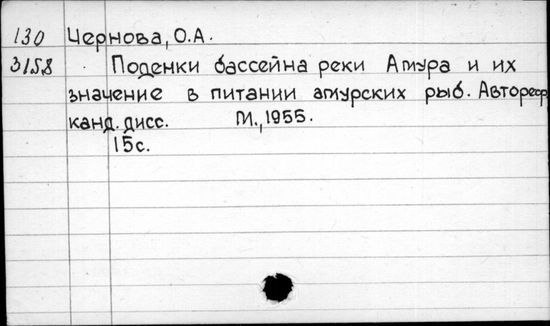 130 Чернова, О.А.
3158 Поденки бассейна реки Амура и их
значение в питании амурских рыб. Автореф.
канд. дисс. М., 1955.
15с.